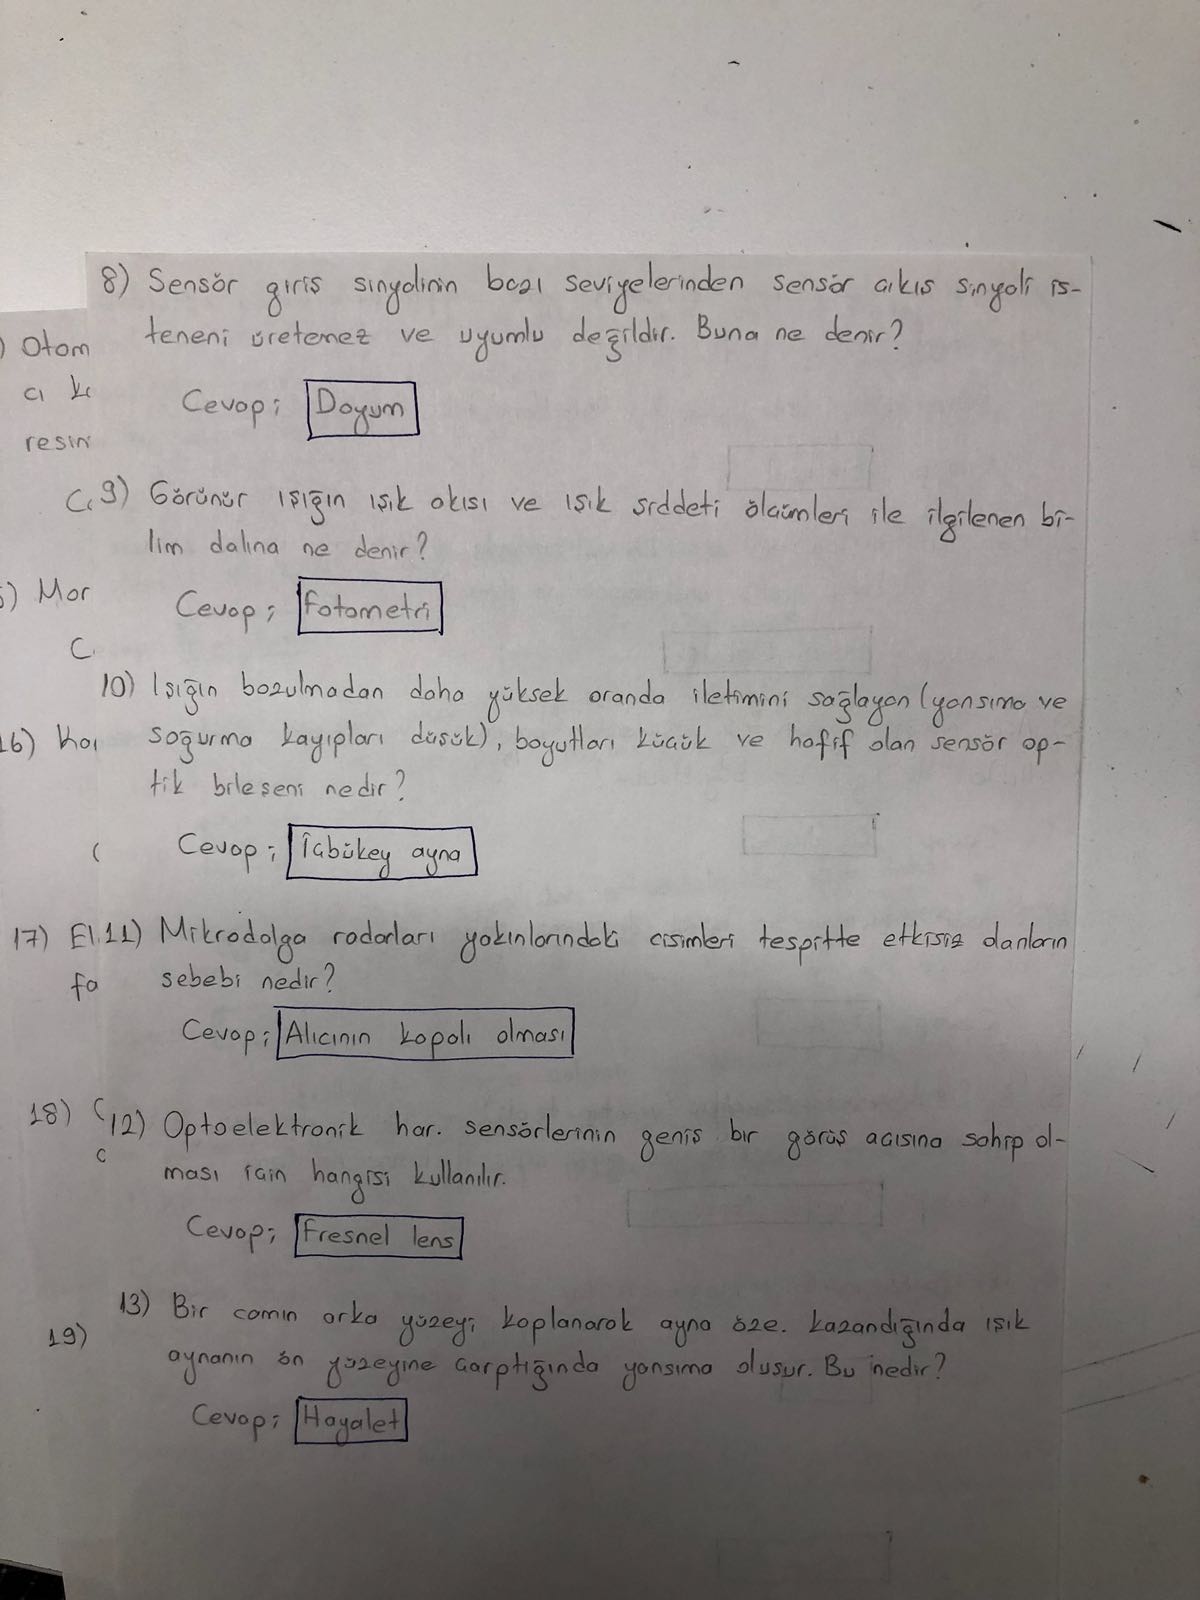 8) Sensör giriş sinyalinin bazı seviyelerinden sensör çıkış sinyali is-
teneni üretemez ve uyumlu değildir. Buna ne denir?
Cevap; Doyum
9) Görünür ışığın ışık akısı ve ışık şiddeti ölçümleri ile ilgilenen bi-
lim dalına ne denir?
Cevap; Fotometri
10) Işığın bozulmadan daha yüksek oranda iletimini sağlayan (yansıma ve
soğurma kayıpları düşük), boyutları küçük ve hafif olan sensör op-
tik bileşeni nedir?
Cevap; İçbükey ayna
11) Mikrodalga radarları yakınlarındaki cisimleri tespitte etkisiz olanların
sebebi nedir?
Cevap; Alıcının kapalı olması
12) Optoelektronik har. sensörlerinin geniş bir görüş açısına sahip ol-
ması için hangisi kullanılır.
Cevap; Fresnel lens
13) Bir camın arka yüzeyi kaplanarak ayna öze. kazandığında ışık
aynanın ön yüzeyine çarptığında yansıma oluşur. Bu nedir?
Cevap; Hayalet
) Otom
cı
resin
) Mor
C
16)
17) El
fa
18)
19)